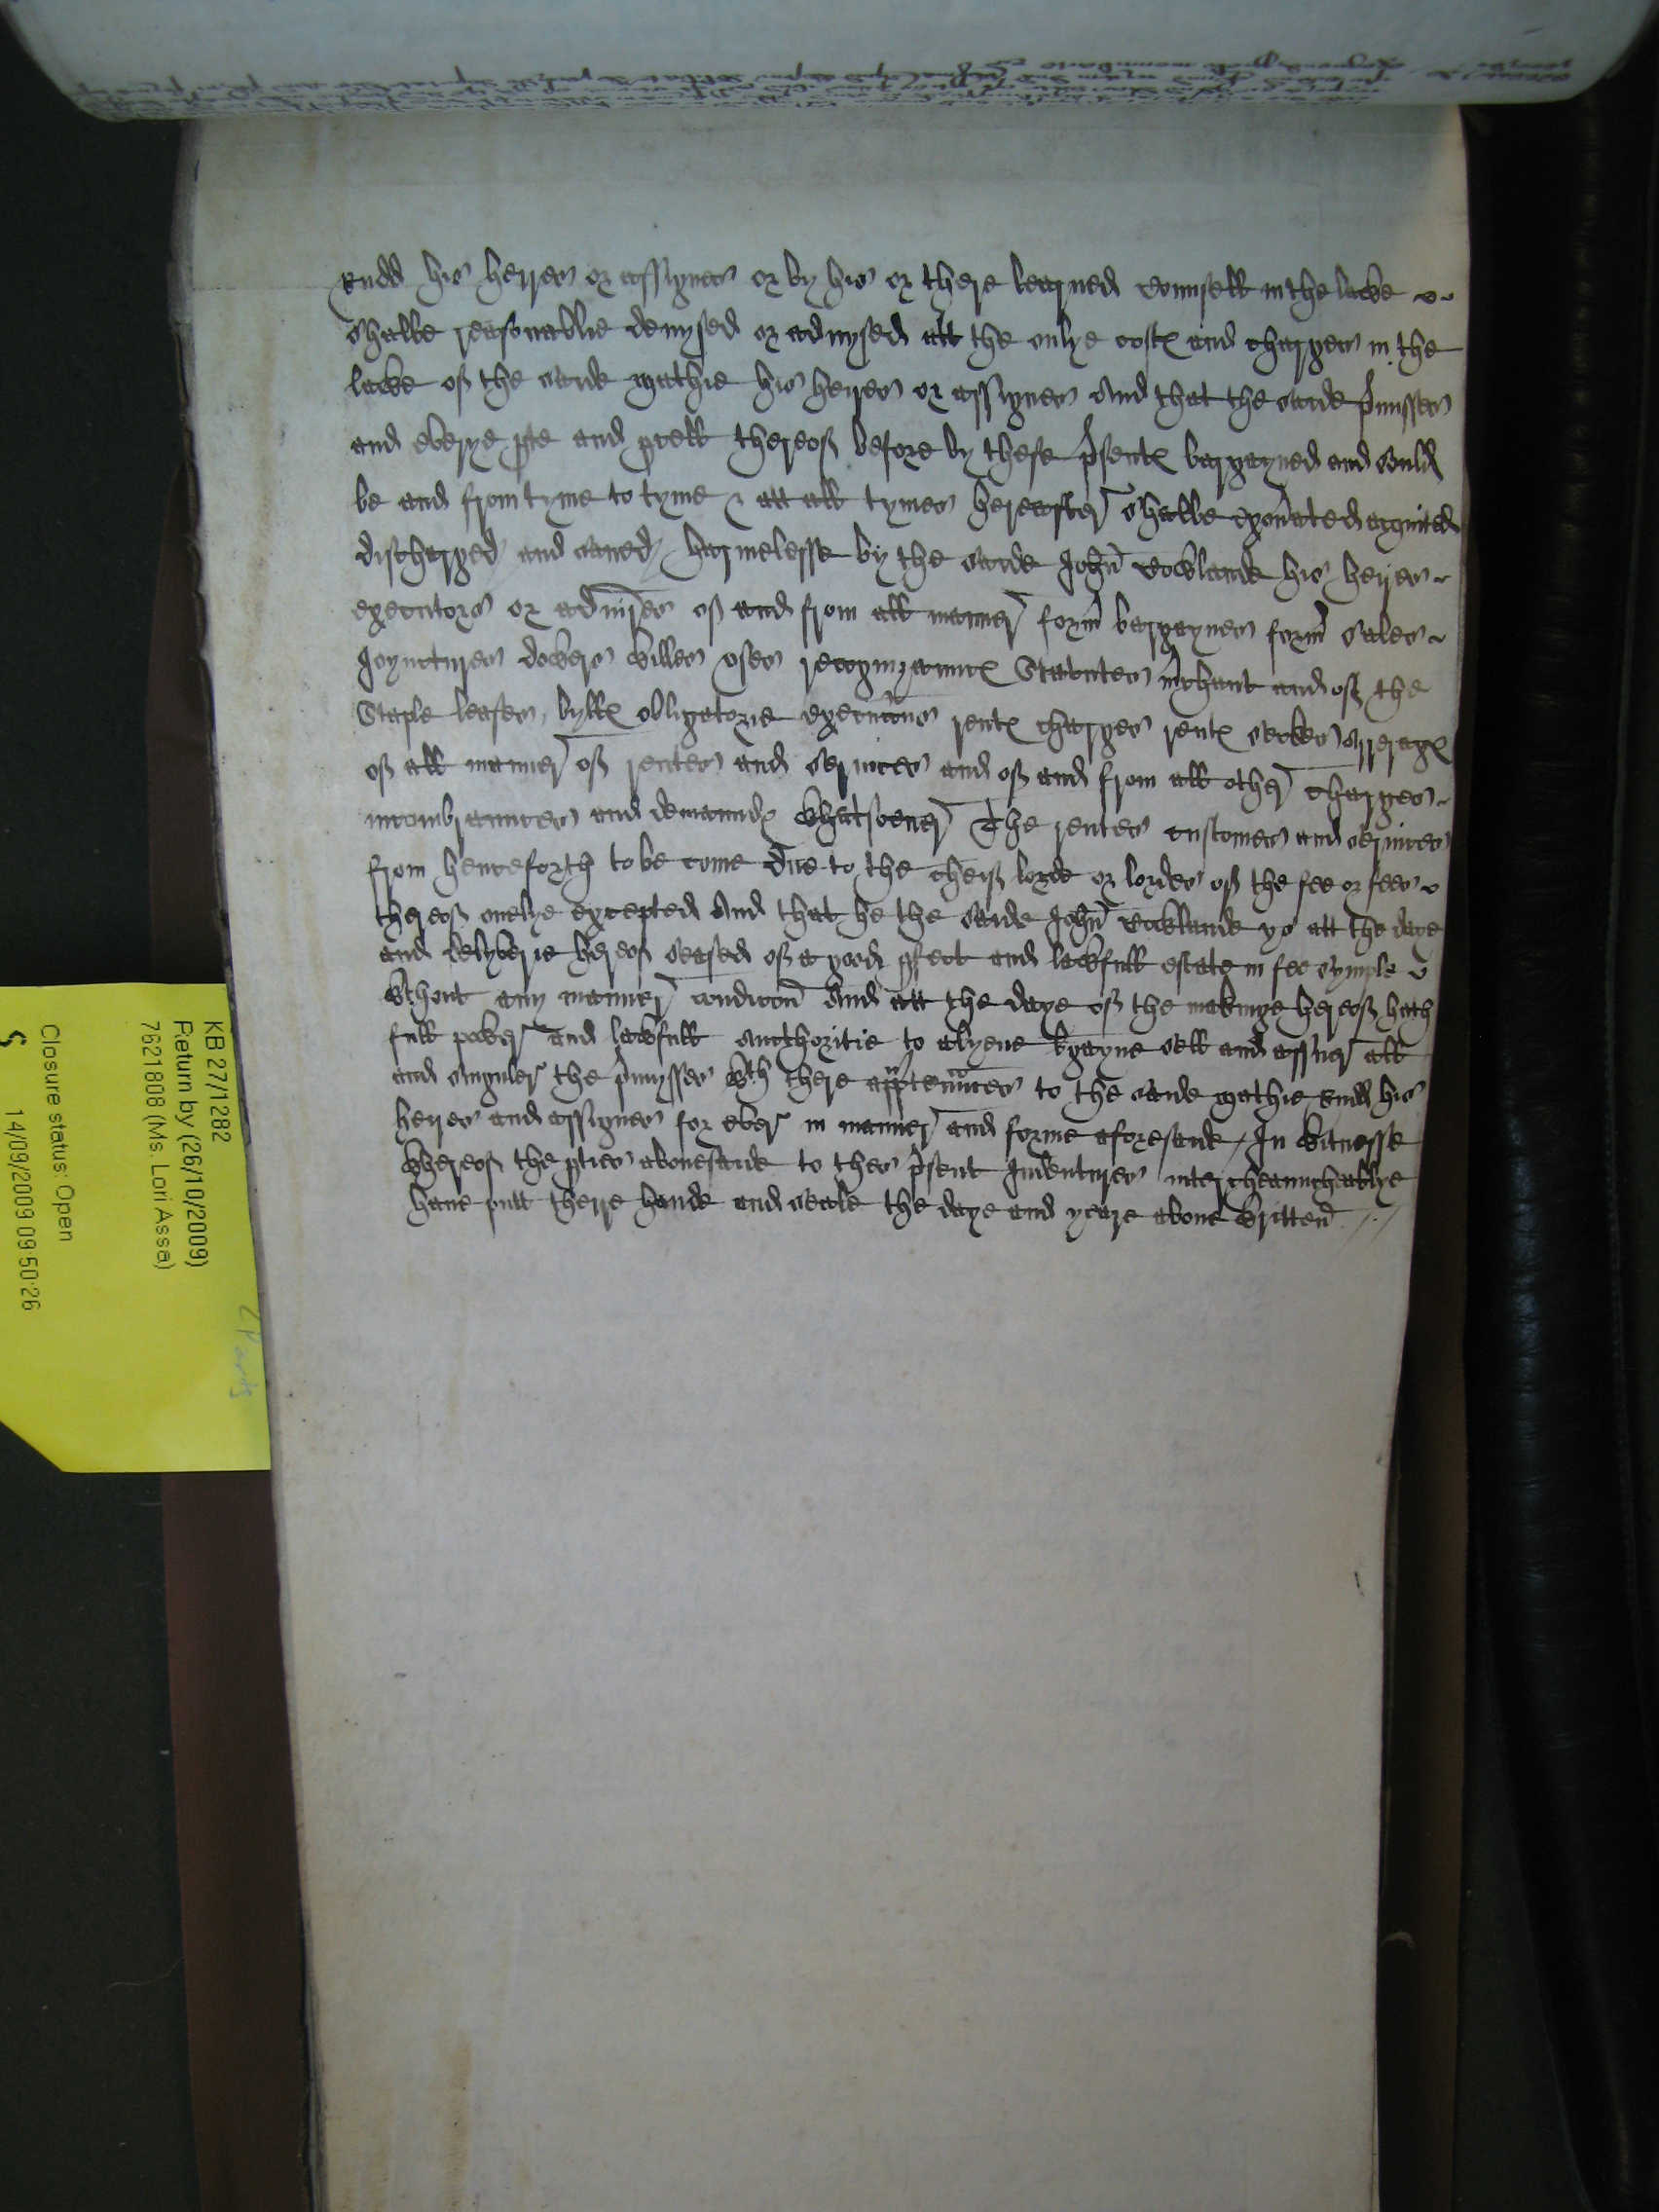 Rudd his heyres or assignes or by his or there learned counsell in the lawe
Shalbe reasonablie devysed or advysed att the onlye costes and charges in the
lawe of the saide Mathie his heyres or assignes And that the saide p'misses
and everye pte and pcell thereof before by these p'sentes bargayned and sould
be and from tyme to tyme & att all tymes hereafter Shalbe exon'ated acquited
discharged and saved harmelesse by the saide John Cowlande his heyres
executors or admi'stres of and from all manner form' bargaynes form' Sales
Joynctures dowers willes uses recognizaunces Statutes m'chant and of the
Staple leases, bylles obligatorie execucions rentes charges rentes seckes arrerages
of all manner of rentes and services and of and from all other charges
incumbraunces and demaundes whatsoever The rentes customes and services
from henceforth to be come due to the cheif lorde or lordes of the fee or fees
thereof onelye excepted And that he the saide John Cowlande ys att the daye
and delyverie hereof seased of a good pfect and lawfull estate in fee symple
wthout any manner condicon And att the daye of the makinge hereof hath
full power and lawfull aucthoritie to alyene bgayne sell and assuer all
and singuler the p'mysses wth there apptenn'ces to the saide Mathie Rudd his
heyres and assignes for ever in manner and forme aforesaide / In witnesse
whereof the pties abovesaide to thes p'sent Indentures intercheaunchablye
have putt theyre hande and seale the daye and yeare above written
KB 27/1282
Return by (26/10/2009)
7621808 (Ms. Lori Assa)
Closure status: Open
14/09/2009 09:50:26
S